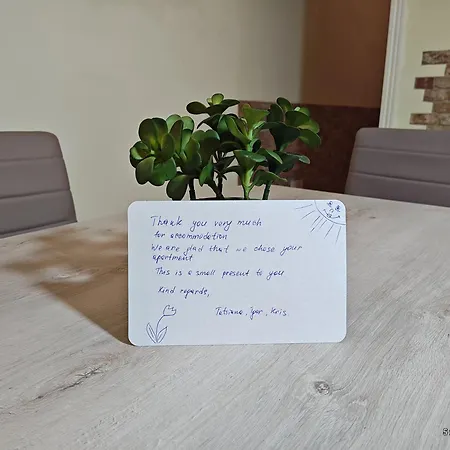 Thank you very much
for accommodation
We are glad that we chose your
apartment
This is a small present to you
Kind regards,
Tatiana, Igor, Kris